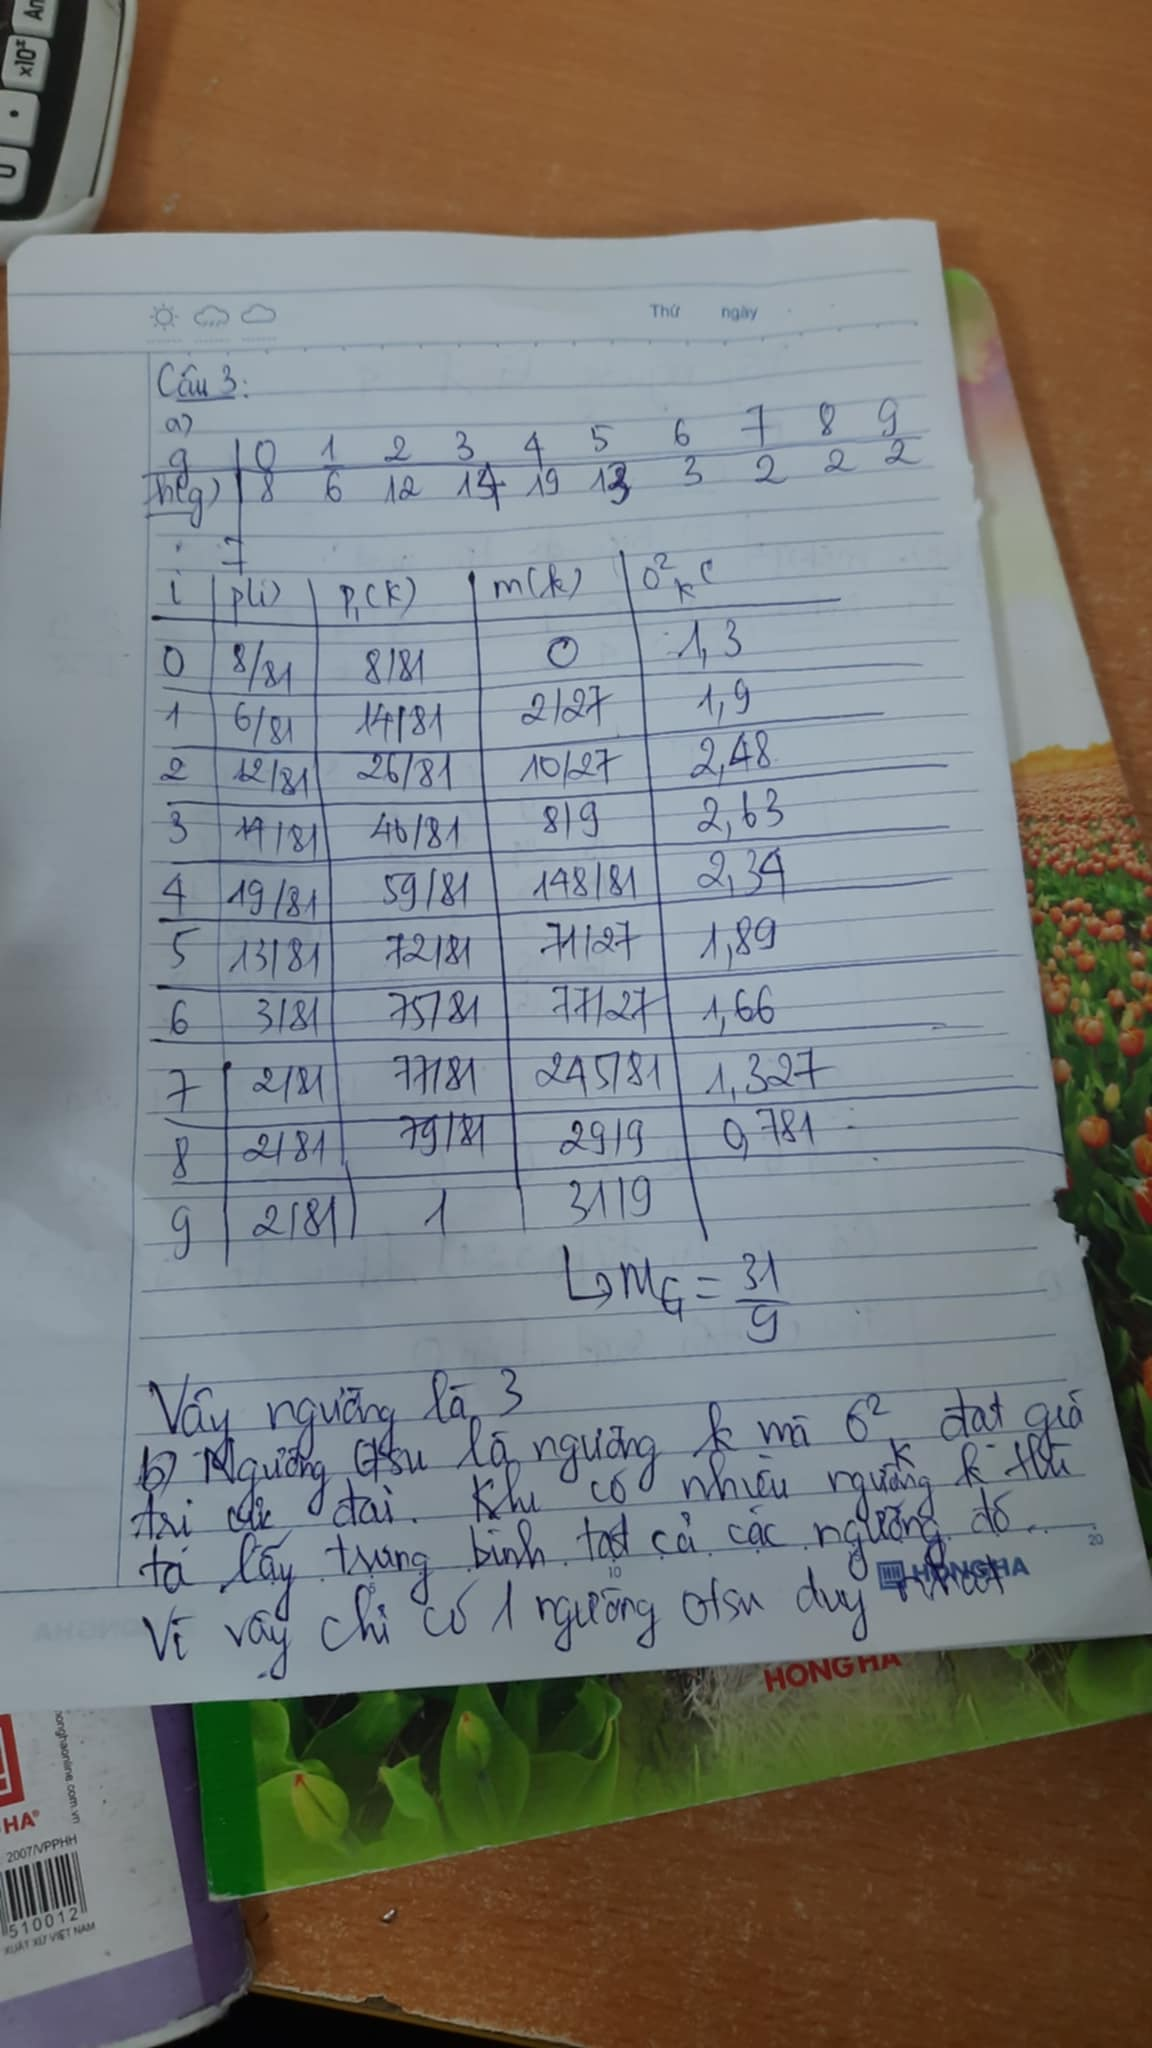 An
×10ˣ
•
0
Thứ ngày
Câu 3:
a)
g 0 1 2 3 4 5 6 7 8 9
h(g) 8 6 12 14 19 13 3 2 2 2
i p(i) p₁(k) m(k) σ²ₖ
0 8/81 8/81 0 1,3
1 6/81 14/81 2/27 1,9
2 12/81 26/81 10/27 2,48
3 14/81 40/81 8/9 2,63
4 19/81 59/81 148/81 2,34
5 13/81 72/81 71/27 1,89
6 3/81 75/81 77/27 1,66
7 2/81 77/81 245/81 1,327
8 2/81 79/81 29/9 0,781
9 2/81 1 31/9
↳ m_G = 31/9
Vậy ngưỡng là 3
b) Ngưỡng Otsu là ngưỡng k mà σ²ₖ đạt giá
trị cực đại. Khi có nhiều ngưỡng k thì
ta lấy trung bình tất cả các ngưỡng đó.
Vì vậy chỉ có 1 ngưỡng Otsu duy nhất
5 10 20
HONGHA
HONG HA
HA®
honghaonline.com.vn
2007/VPPHH
510012
XUẤT XỨ VIỆT NAM